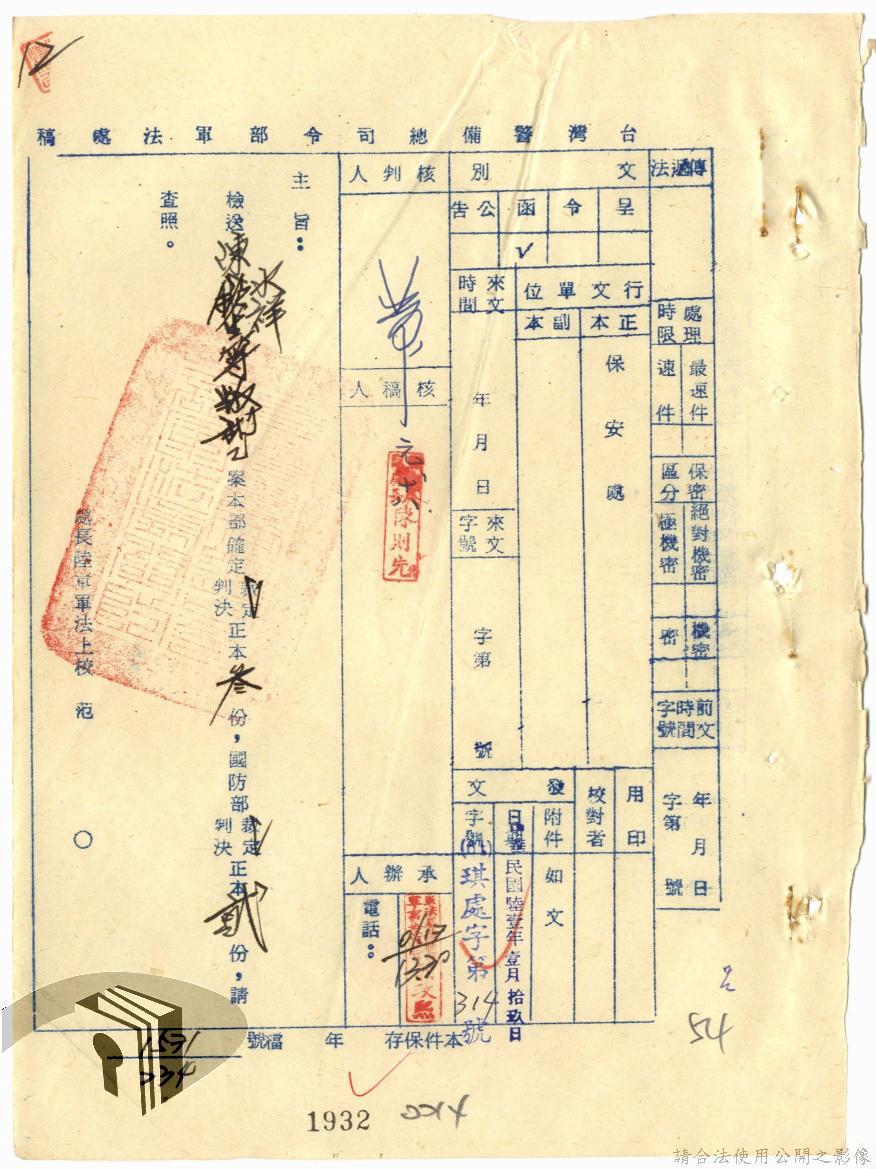 12
台灣警備總司令部軍法處稿
傳遞法
處理時限
最速件
速件
保密區分
絕對機密
極機密
機密
密
前文時間字號
年月日
字第號
文別
呈
令
函
公告
ˇ
行文單位
正本
副本
保安處
來文時間
年月日
來文字號
字第號
用印
校對者
發文
附件
如文
日期
中華民國陸壹年壹月拾玖日
字號
(61)琪處字第314號
核判人
黃
元
核稿人
陳則先
承辦人
電話：
1/17
1330
主旨：
檢送陳水祥等叛亂案本部確定裁定判決正本叁份，國防部裁定判決正本貳份，請
查照。
處長陸軍軍法上校 范 ○
本件保存 年 檔號
1571
234
1932
54
請合法使用公開之影像